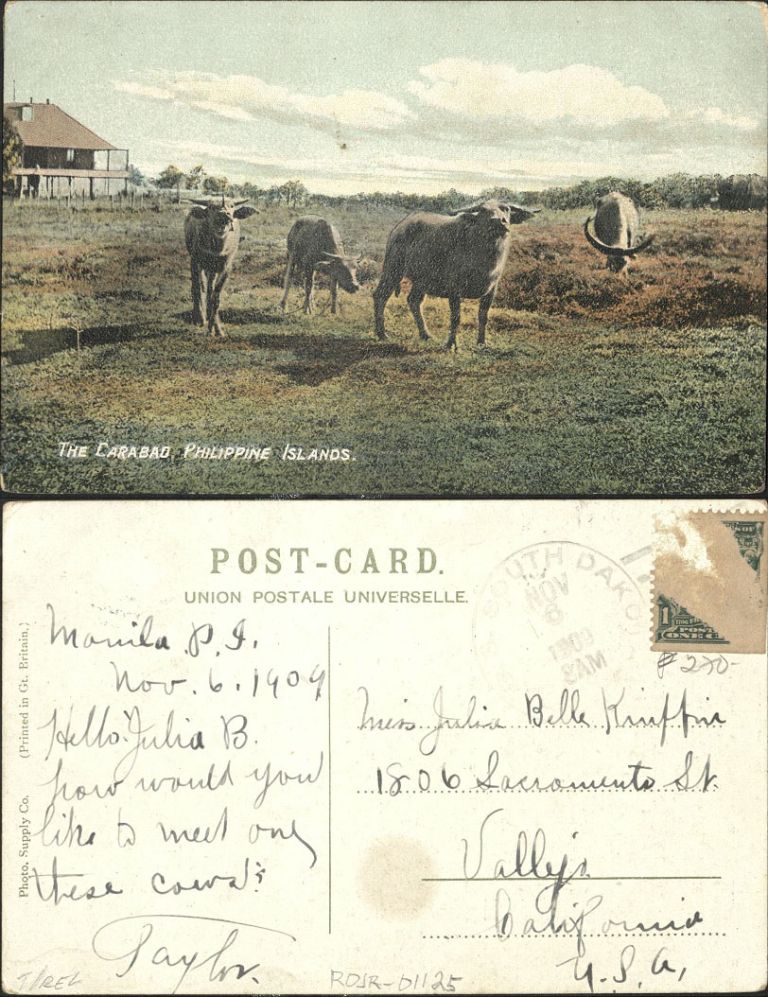 THE CARABAO, PHILIPPINE ISLANDS.
POST-CARD.
UNION POSTALE UNIVERSELLE.
SOUTH DAKO
NOV
8
1909
8AM
1
POST
ONE C
₱ 270-
Photo. Supply Co. (Printed in Gt. Britain.)
Manila P.I.
Nov. 6. 1909
Hello Julia B.
how would you
like to meet one
these cows?
Taylor.
Miss Julia Belle
1806 Sacramento St.
Vallejo
California
U.S.A,
T/REL
ROJR-D1125